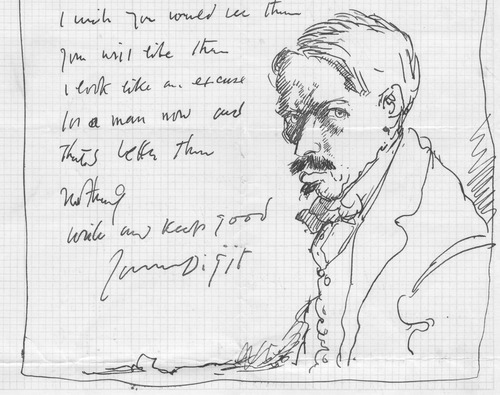 I wish you would see them
you will like them
I look like an excuse
for a man now and
that's better than
nothing
write and keep good